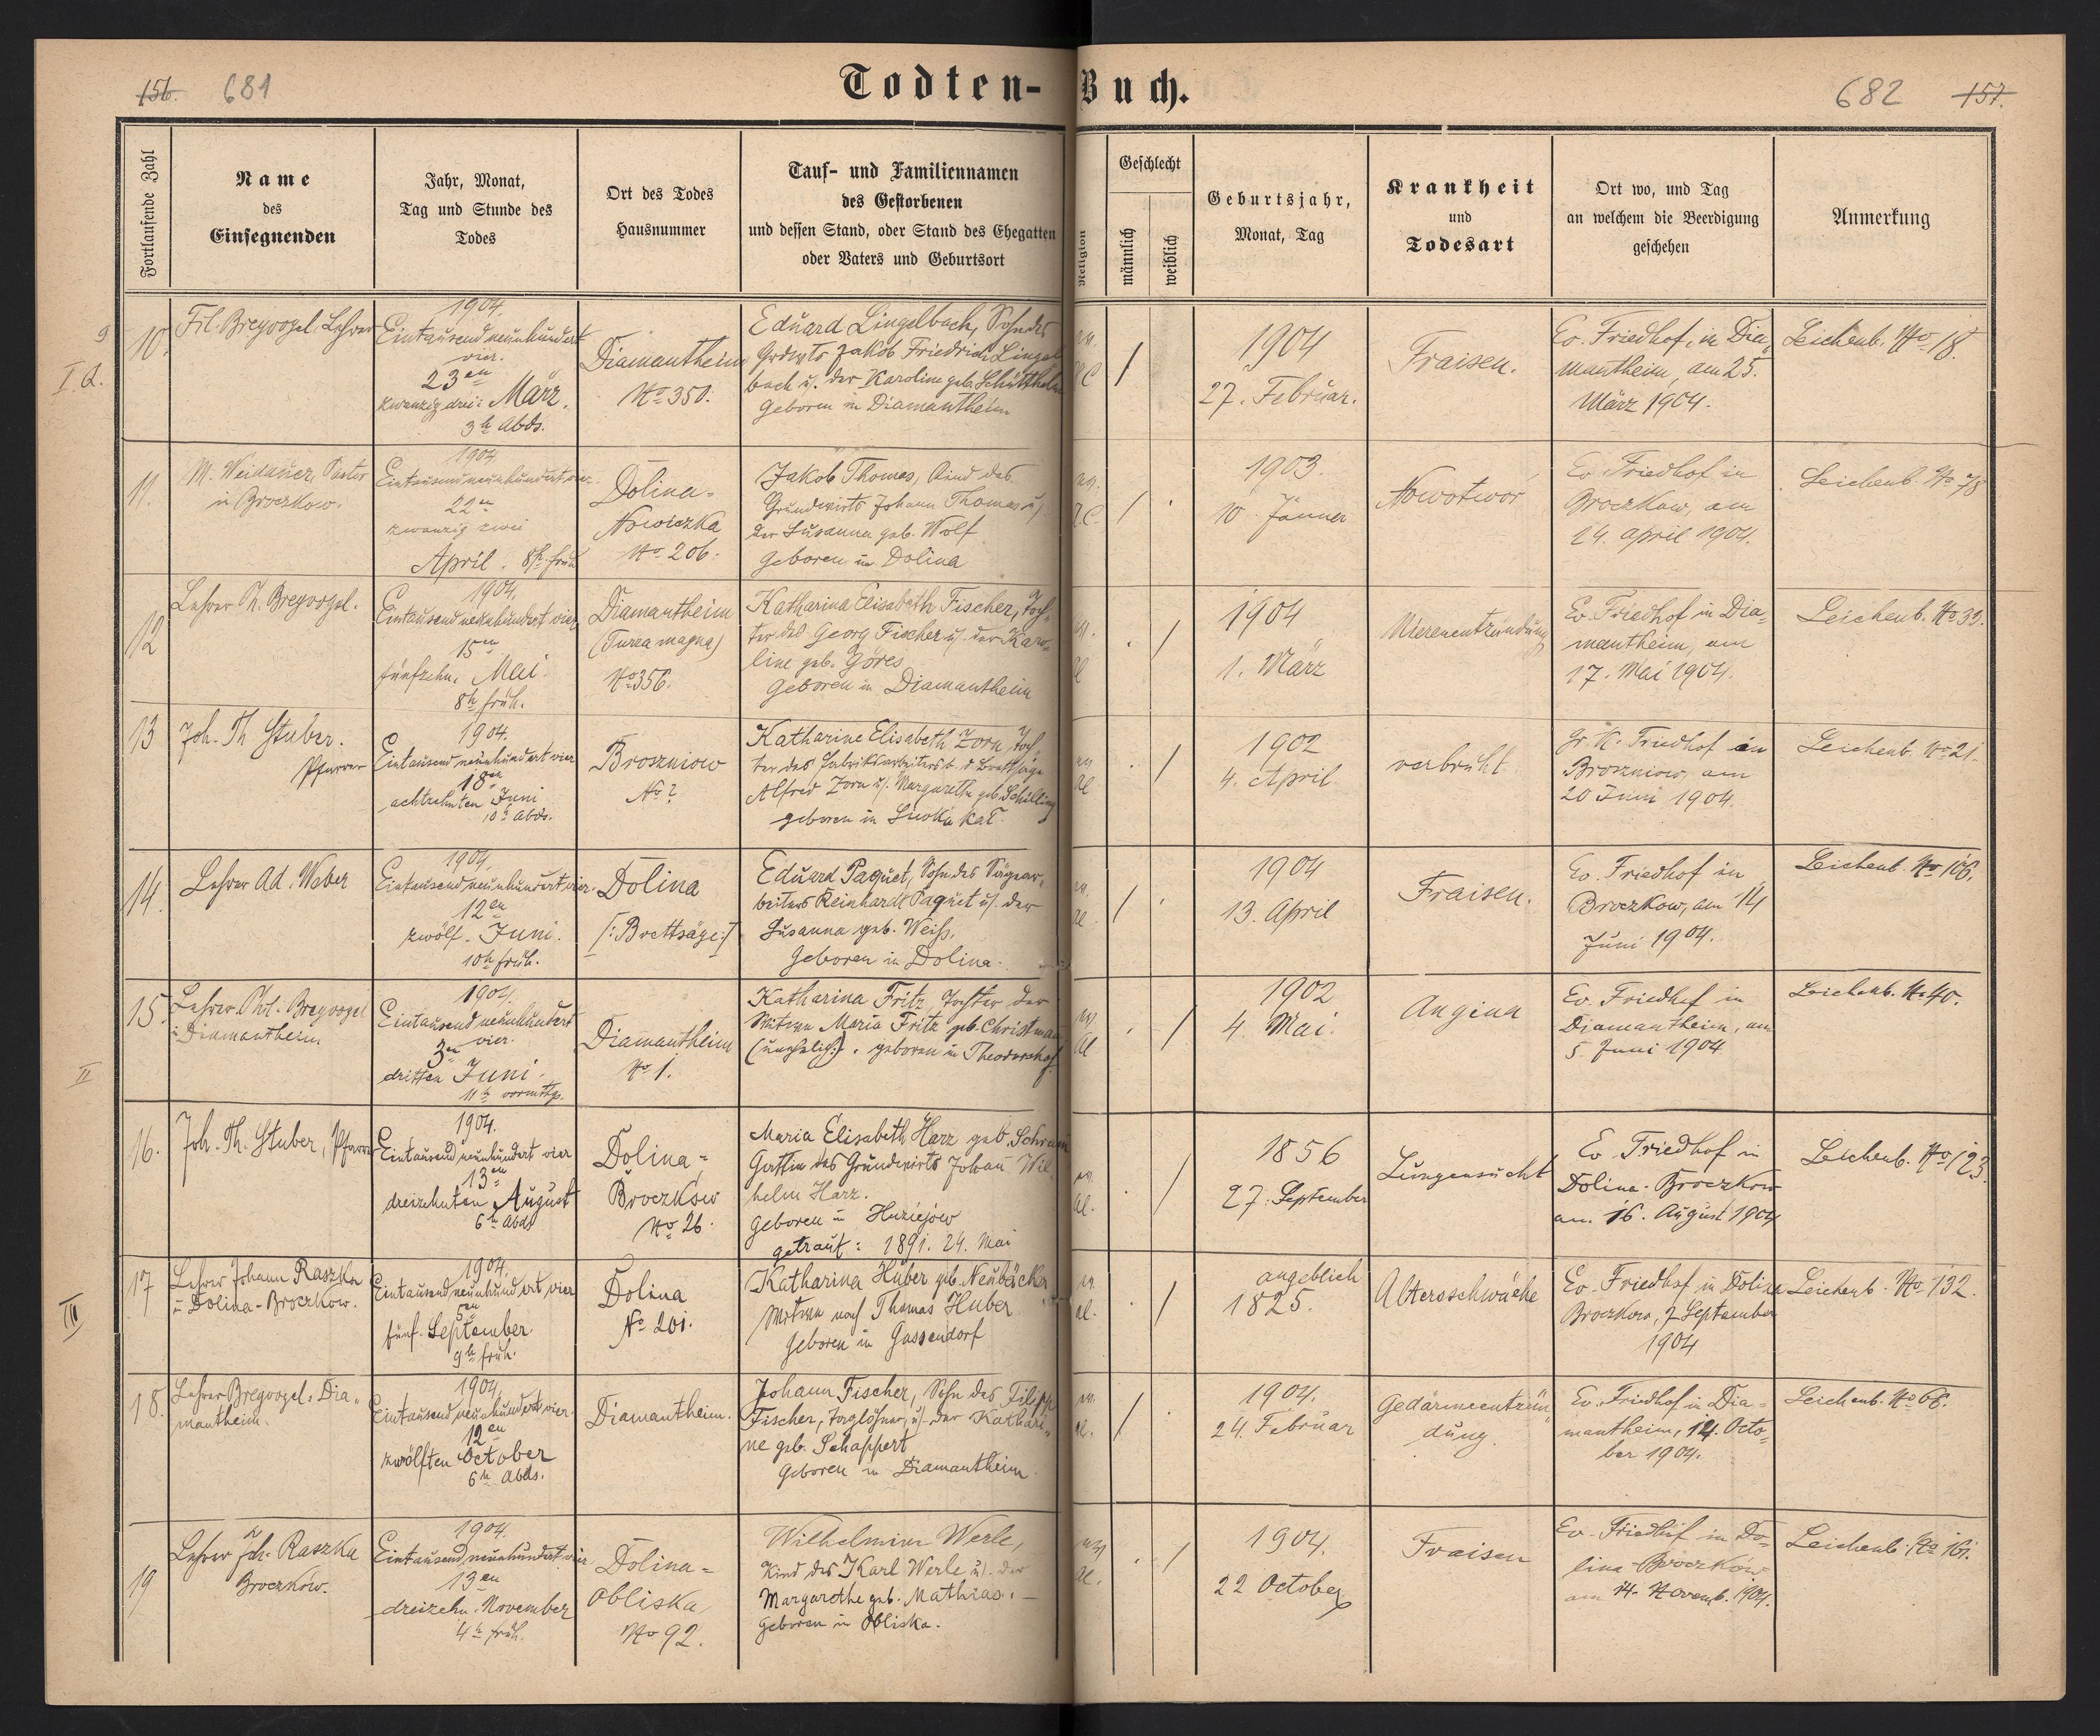 156. 681
Todten-Buch.
682 157.
Fortlaufende Zahl
Name
des
Einsegnenden
Jahr, Monat,
Tag und Stunde des
Todes
Ort des Todes
Hausnummer
Tauf- und Familiennamen
des Gestorbenen
und dessen Stand, oder Stand des Ehegatten
oder Vaters und Geburtsort
Religion
Geschlecht
männlich
weiblich
Geburtsjahr,
Monat, Tag
Krankheit
und
Todesart
Ort wo, und Tag
an welchem die Beerdigung
geschehen
Anmerkung
9
I Q.
10.
Fil. Bregvogel, Lehrer
1904.
Eintausend neunhundert
vier.
23en
zwanzig drei März.
3h Abds.
Diamantheim
No 350.
Eduard Lingelbach, Sohn des
Grdwts Jakob Friedrich Lingel
bach u. der Karoline geb.
geboren in Diamantheim
/
1904
27. Februar.
Fraisen.
Ev. Friedhof, in Dia
mantheim, am 25.
März 1904.
Leichenb. No 18.
11.
M. Weidauer, Pastor
in Broczkow.
1904
Eintausend neunhundert vier.
22en
zwanzig zwei
April. 8h früh
Dolina-
Nowiczka
No 206.
Jakob Thomas, Kind des
Grundwirts Johann Thomas u.
der Susanna geb. Wolf
geboren in Dolina
/ .
1903.
10. Jänner
Nowotwór
Ev Friedhof in
Broczkow, am
24. April 1904.
Leichenb. No 78
12
Lehrer F. Bregvogel.
1904,
Eintausend neunhundert vier
15en
fünfzehn. Mai.
8h früh.
Diamantheim
(Turza magna)
No 356.
Katharina Elisabeth Fischer, Toch-
ter des Georg Fischer u. der Karo-
line geb. Göres
geboren in Diamantheim
. /
1904
1. März
Nierenentzündung
Ev. Friedhof in Dia-
mantheim, am
17. Mai 1904.
Leichenb. No 33.
13
Joh. Th Stuber.
Pfarrer
1904.
Eintausend neunhundert vier
18en
achtzehnten Juni
10h Abds.
Broszniow
No ?
Katharine Elisabeth Zorn, Toch-
ter des Fabriksarbeiters b. d Brettsäge
Alfred Zorn u. Margaretha geb. Schilling
geboren in
. /
1902
4. April
verbrüht
Gr. K. Friedhof in
Broszniow, am
20 Juni 1904.
Leichenb. No 21.
14.
Lehrer Ad. Weber
1904,
Eintausend neunhundert vier.
12en
zwölf. Juni.
10h früh.
Dolina
[:Brettsäge:]
Eduard Paquet, Sohn des Sägear-
beiters Reinhardt Paquet u. der
Susanna geb. Weiß.
geboren in Dolina.
/ .
1904
13. April
Fraisen.
Ev. Friedhof in
Broczkow, am 14
Juni 1904.
Leichenb. No 106.
15.
Lehrer Phil. Bregvogel
in Diamantheim
1904.
Eintausend neunhundert
vier.
3en
dritten Juni.
11h vormttgs.
Diamantheim
No 1.
Katharina Fritz, Tochter der
Witwe Maria Fritz geb. Christman
(unehelich). geboren in Theodorshof
. /
1902
4 Mai.
Angina
Ev. Friedhof in
Diamantheim, am
5. Juni 1904
Leichenb. No 40.
II
16.
Joh. Th. Stuber, Pfarrer
1904.
Eintausend neunhundert vier
13en
dreizehnten August
6h Abds
Dolina-
Broczkow
No 26.
Maria Elisabeth Harz geb.
Gattin des Grundwirts Johann Wil-
helm Harz.
geboren in Huziejow
getraut: 1891. 24. Mai
. /
1856
27. September
Lungensucht
Ev. Friedhof in
Dolina-Broczkow
am. 16. August 1904
Leichenb. No 123.
III
17
Lehrer Johann Raszka
in Dolina-Broczkow.
1904.
Eintausend neunhundert vier
5en
fünf. September.
9h früh.
Dolina
No 201.
Katharina Huber geb. Neubäcker
Witwe nach Thomas Huber
geboren in Gassendorf
. /
angeblich
1825.
Altersschwäche
Ev. Friedhof in Dolina
Broczkow, 7 September
1904
Leichenb. No 132.
18.
Lehrer Bregvogel, Dia-
mantheim.
1904,
Eintausend neunhundert vier.
12en
zwölften October
6h Abds.
Diamantheim.
Johann Fischer, Sohn des Filipp
Fischer, Taglöhner, u. der Kathari-
ne geb. Schappert
geboren in Diamantheim.
/ .
1904.
24. Februar
Gedärmeentzün
dung.
Ev. Friedhof in Dia-
mantheim, 14. Octo-
ber 1904.
Leichenb. No 68.
19
Lehrer Joh. Raszka
Broczków.
1904.
Eintausend neunhundert vier.
13en
dreizehn. November
4h früh.
Dolina-
Obliska
No 92.
Wilhelmine Werle,
Kind des Karl Werle u. der
Margarethe geb. Mathias. –
geboren in Obliska.
. /
1904.
22 October
Fraisen
Ev. Friedhof in Do-
lina-Broczków
am 14. Novemb. 1904.
Leichenb. No 161.